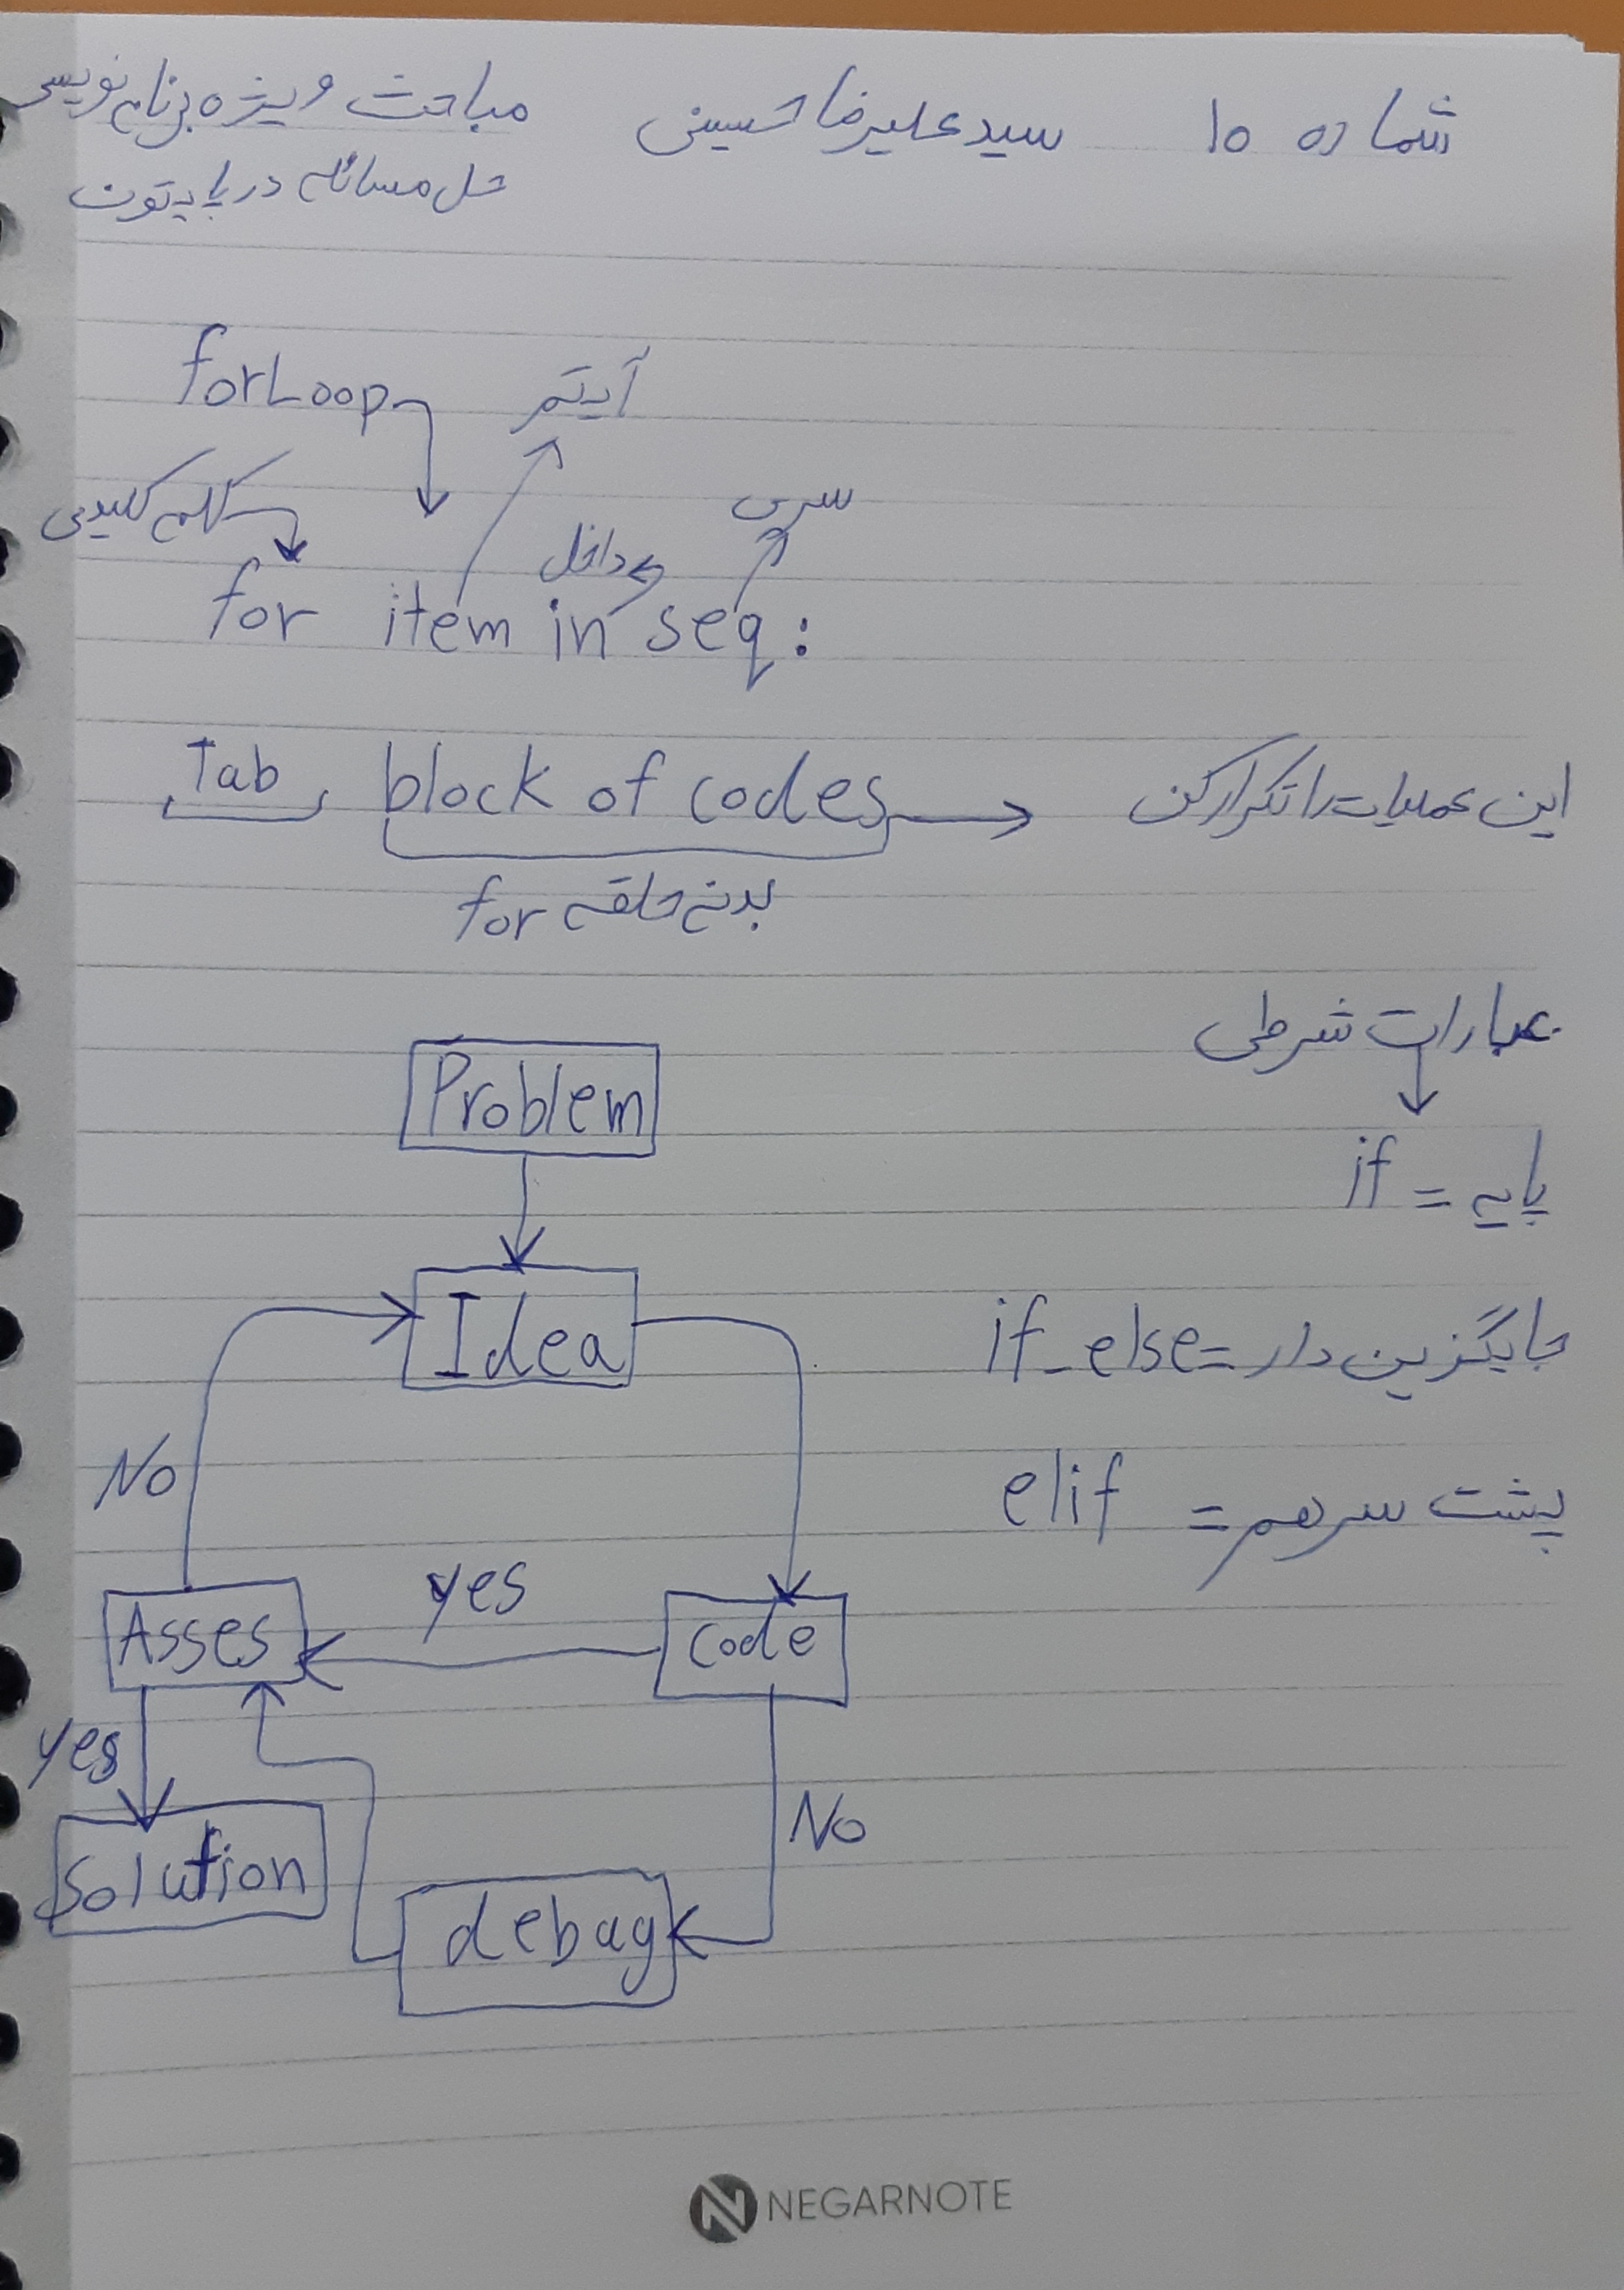 شماره ۱۰ سید علیرضا حسینی مباحث ویژه برنامه نویسی
حل مسائل در پایتون
forLoop آیتم
کلمه کلیدی داخل سری
for item in seq:
Tab block of codes این عملیات را تکرار کن
بدنه حلقه for
عبارات شرطی
Problem
پایه = if
Idea
جایگزین دار = if_else
No
پشت سر هم = elif
yes
Asses code
yes
No
Solution
debag
NEGARNOTE